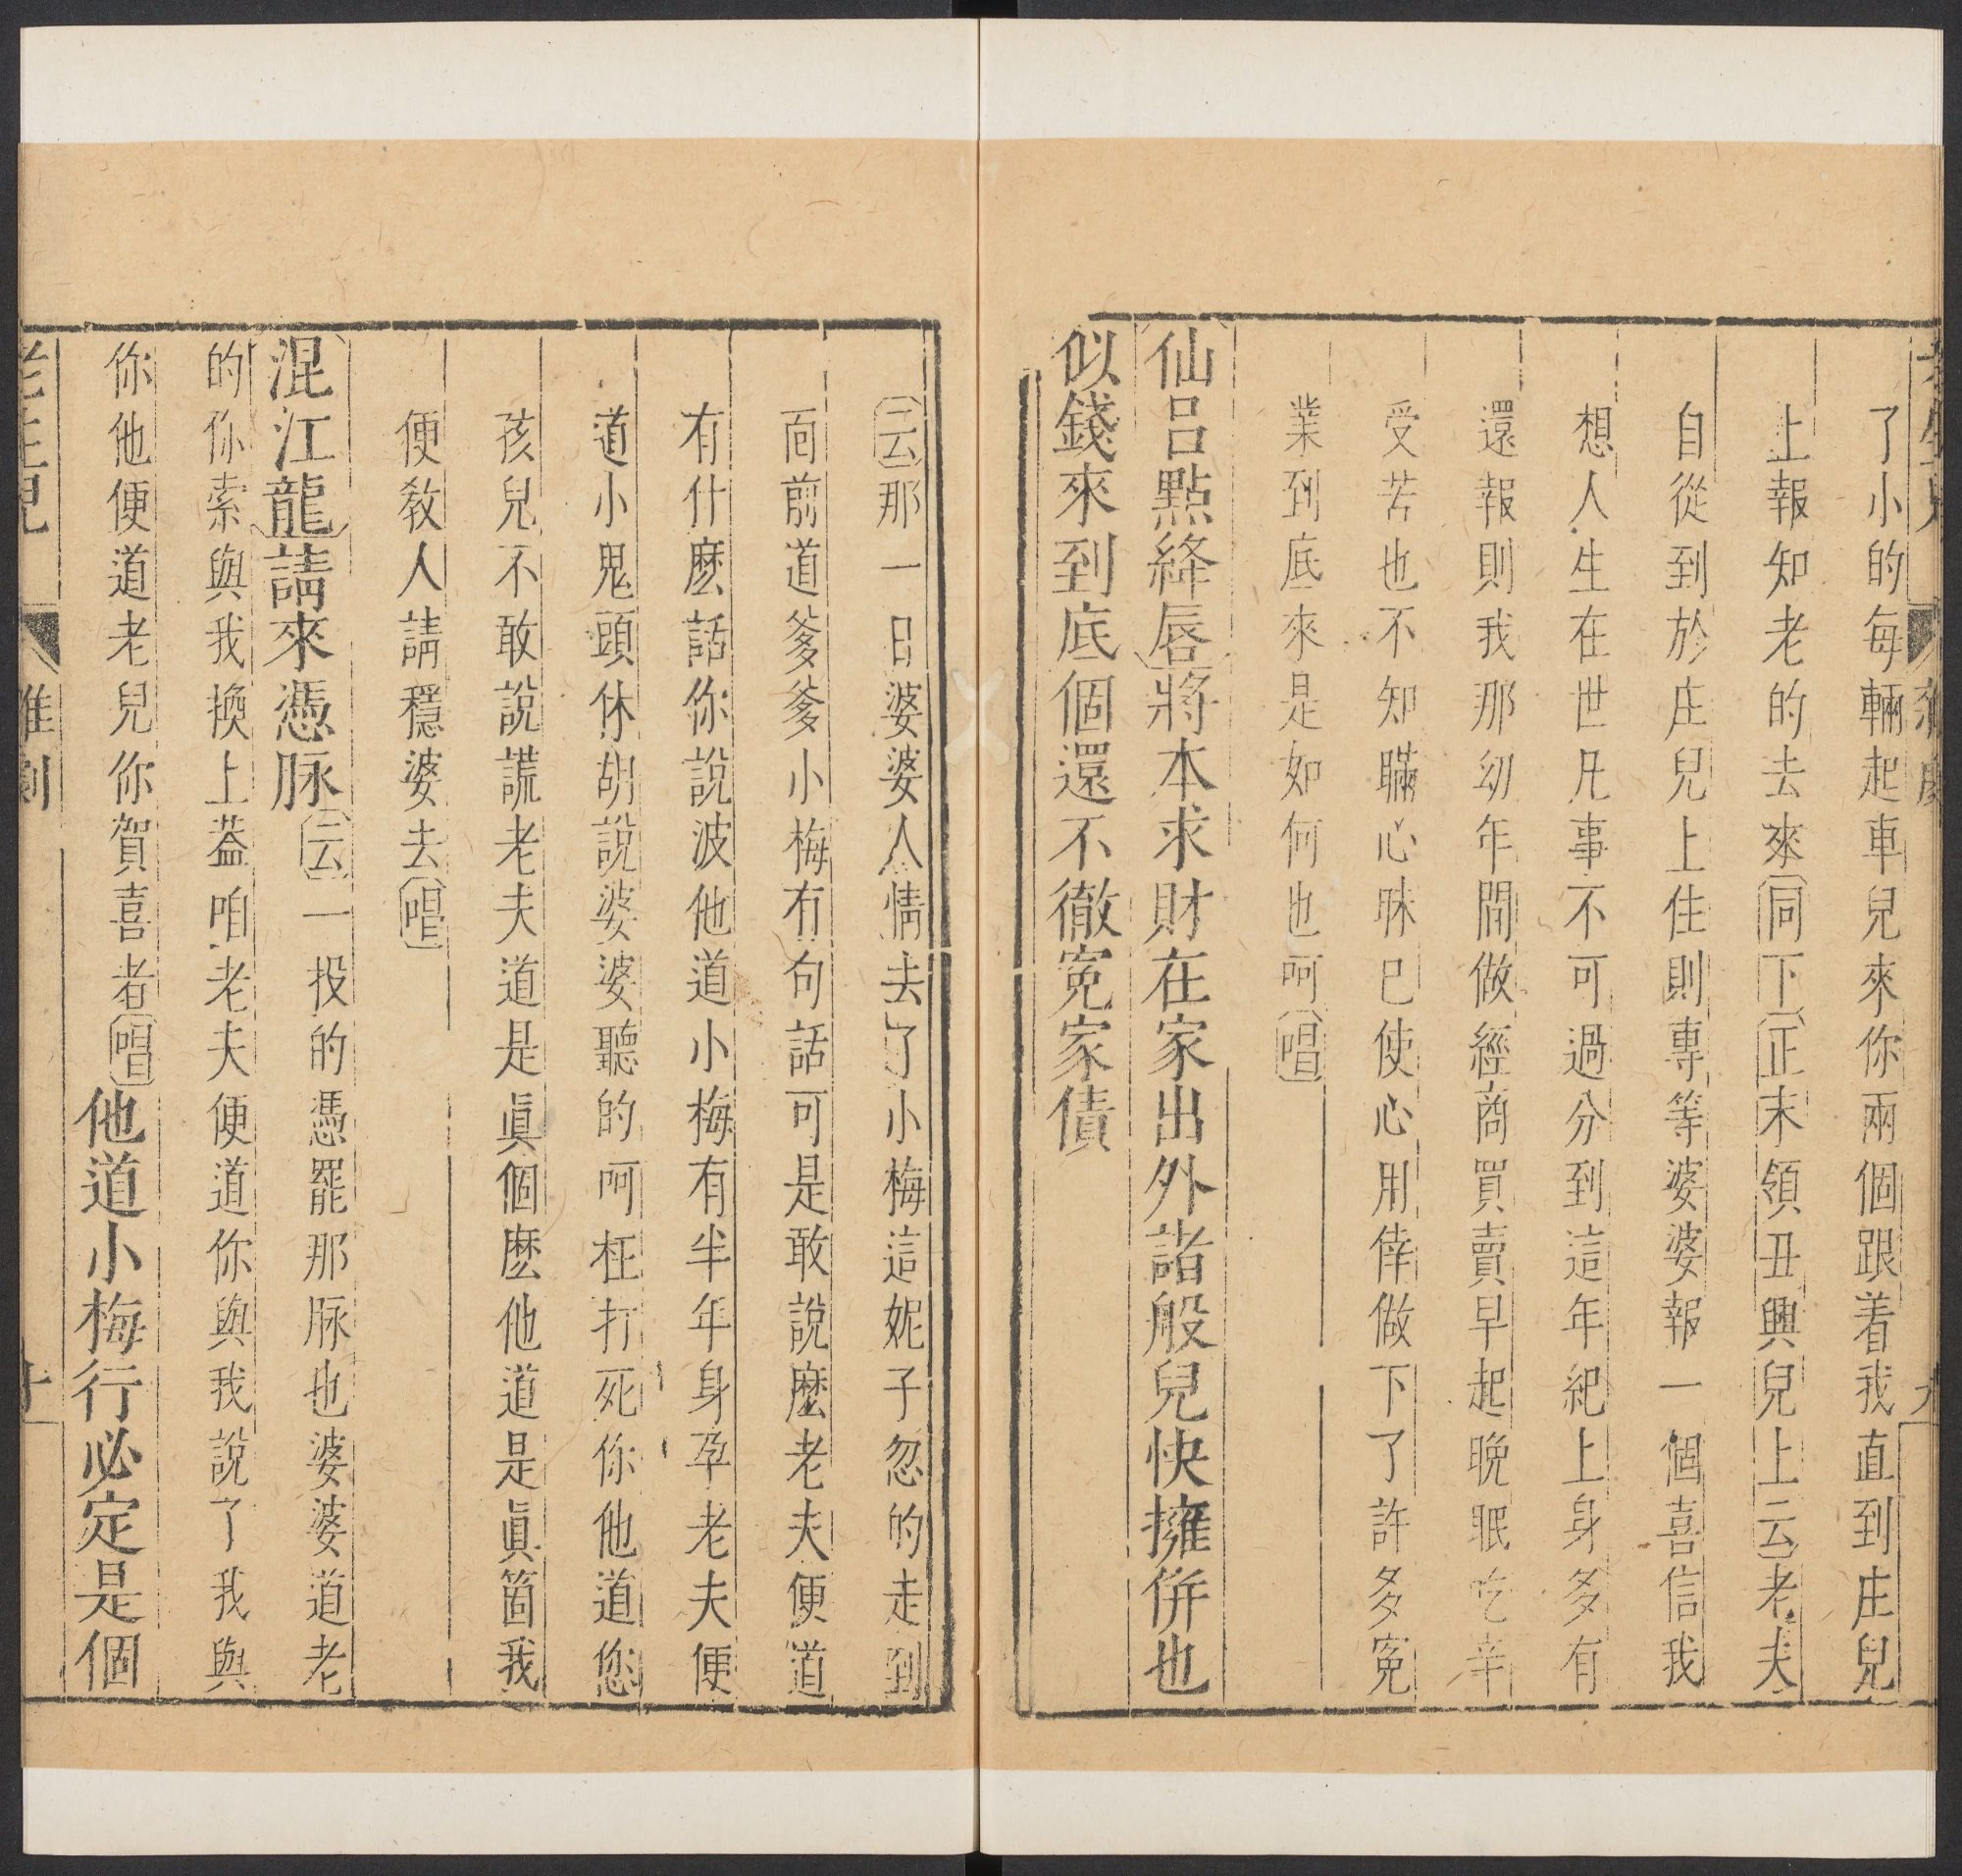 了小的每輛起車兒來你兩個跟着我直到庄兒
上報知老的去來同下正末領丑興兒上云老夫
自從到於庄兒上住則專等婆婆報一個喜信我
想人生在世凡事不可過分到這年紀上身多有
還報則我那幼年間做經商買賣早起晚眠吃辛
受苦也不知瞞心昧已使心用倖做下了許多寃
業到底來是如何也呵唱
仙呂點絳唇將本求財在家出外諸般兒快擁併也
似錢來到底個還不徹寃家債
云那一日婆婆人情去了小梅這妮子忽的走到
面前道爹爹小梅有句話可是敢說麽老夫便道
有什麽話你說波他道小梅有半年身孕老夫便
道小鬼頭休胡說婆婆聽的呵枉打死你他道您
孩兒不敢說謊老夫道是眞個麽他道是眞箇我
便教人請穩婆去唱
混江龍請來憑脉云一投的憑罷那脉也婆婆道老
的你索與我換上葢咱老夫便道你與我說了我與
你他便道老兒你賀喜者唱他道小梅行必定是個
老生兒 雜劇 十